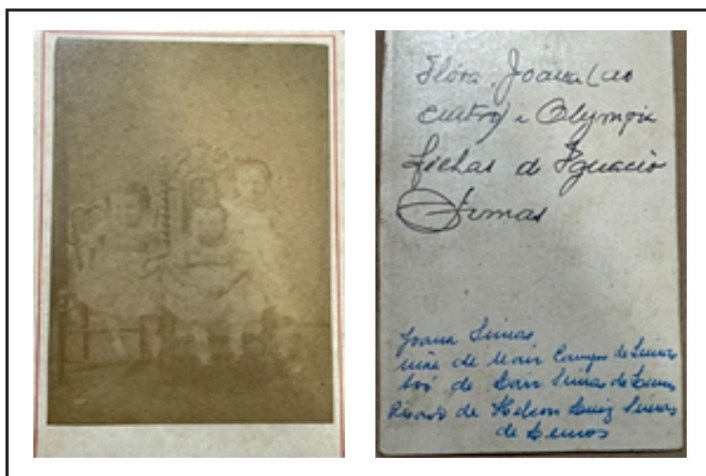 Flóra, Joana (ao
centro) e Olympia
filhas de Ignacio
Simas
Joana Simas
mãe de Nair Campos de Simas
de Nair Simas de Lemos
de Nelson Luiz Simas
de Lemos